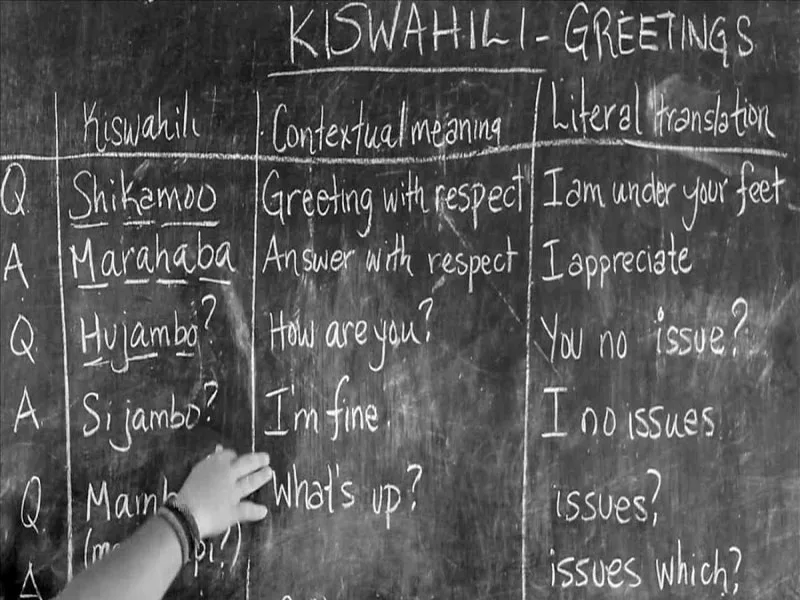 KISWAHILI - GREETINGS
Kiswahili Contextual meaning Literal translation
Q Shikamoo Greeting with respect I am under your feet
A Marahaba Answer with respect I appreciate
Q Hujambo? How are you? You no issue?
A Sijambo? I'm fine. I no issues
Q What's up? issues?
A issues which?